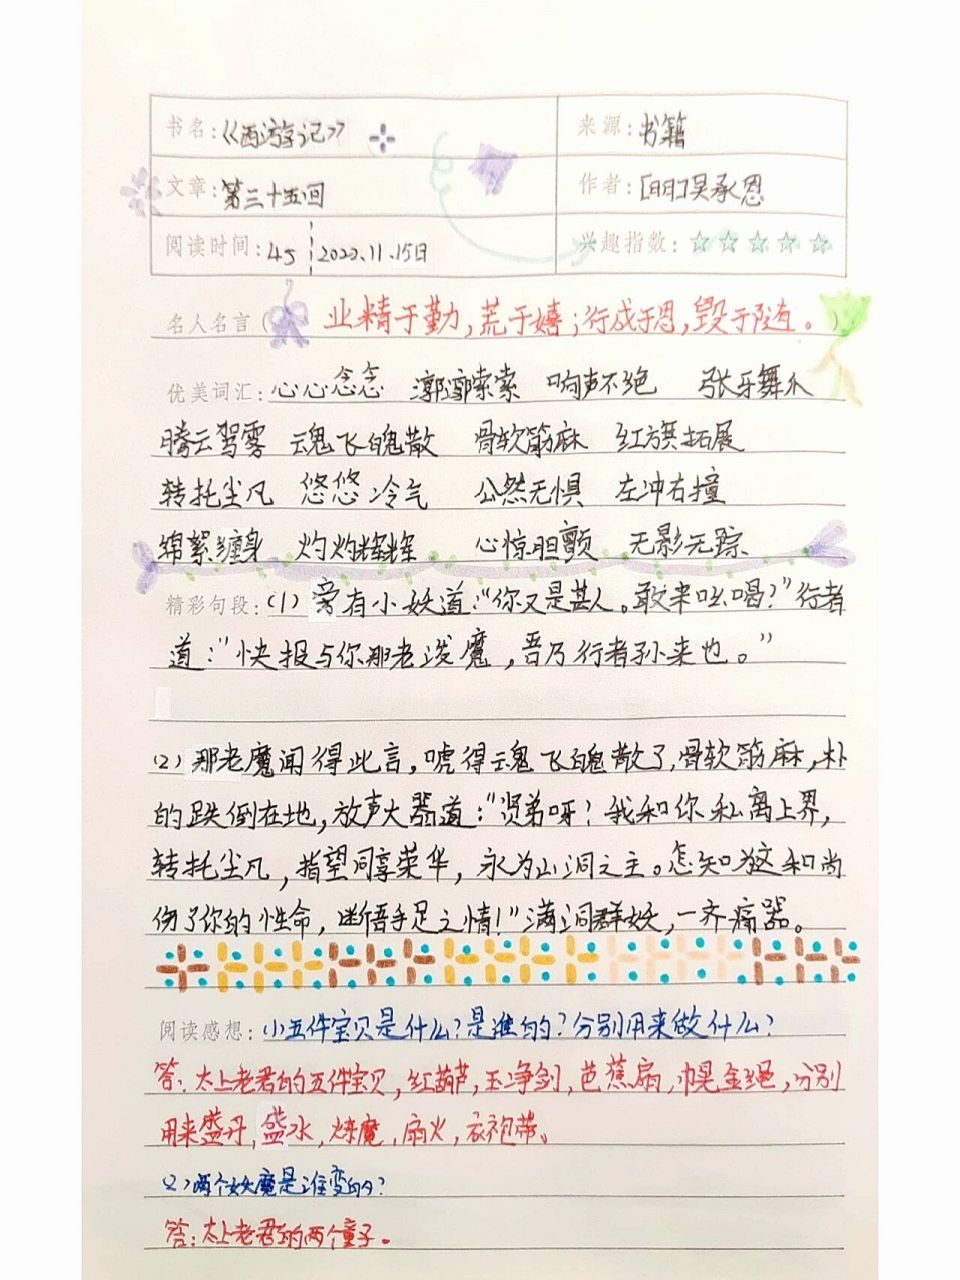 书名:《西游记》 来源:书籍
文章:第三十五回 作者:[明]吴承恩
阅读时间:45 2022.11.15日 兴趣指数:☆☆☆☆☆
名人名言( 业精于勤,荒于嬉;行成于思,毁于随。 )
优美词汇:心心念念 漷漷索索 响声不绝 张牙舞爪
腾云驾雾 魂飞魄散 骨软筋麻 红旗拓展
转托尘凡 悠悠冷气 公然无惧 左冲右撞
绵絮缠身 灼灼辉辉 心惊胆颤 无影无踪
精彩句段:(1)旁有小妖道:“你又是甚人。敢来吆喝?”行者
道:“快报与你那老泼魔,吾乃行者孙来也。”
(2)那老魔闻得此言,唬得魂飞魄散了,骨软筋麻,朴
的跌倒在地,放声大器道:“贤弟呀!我和你私离上界,
转托尘凡,指望同享荣华,永为山洞之主。怎知为这和尚
伤了你的性命,断吾手足之情!”满洞群妖,一齐痛器。
阅读感想:小五件宝贝是什么?是谁的?分别用来做什么?
答:太上老君的五件宝贝,红葫芦,玉净剑,芭蕉扇,幌金绳,分别
用来盛丹,盛水,炼魔,扇火,衣袍带。
(2)两个妖魔是谁变的?
答:太上老君的两个童子。